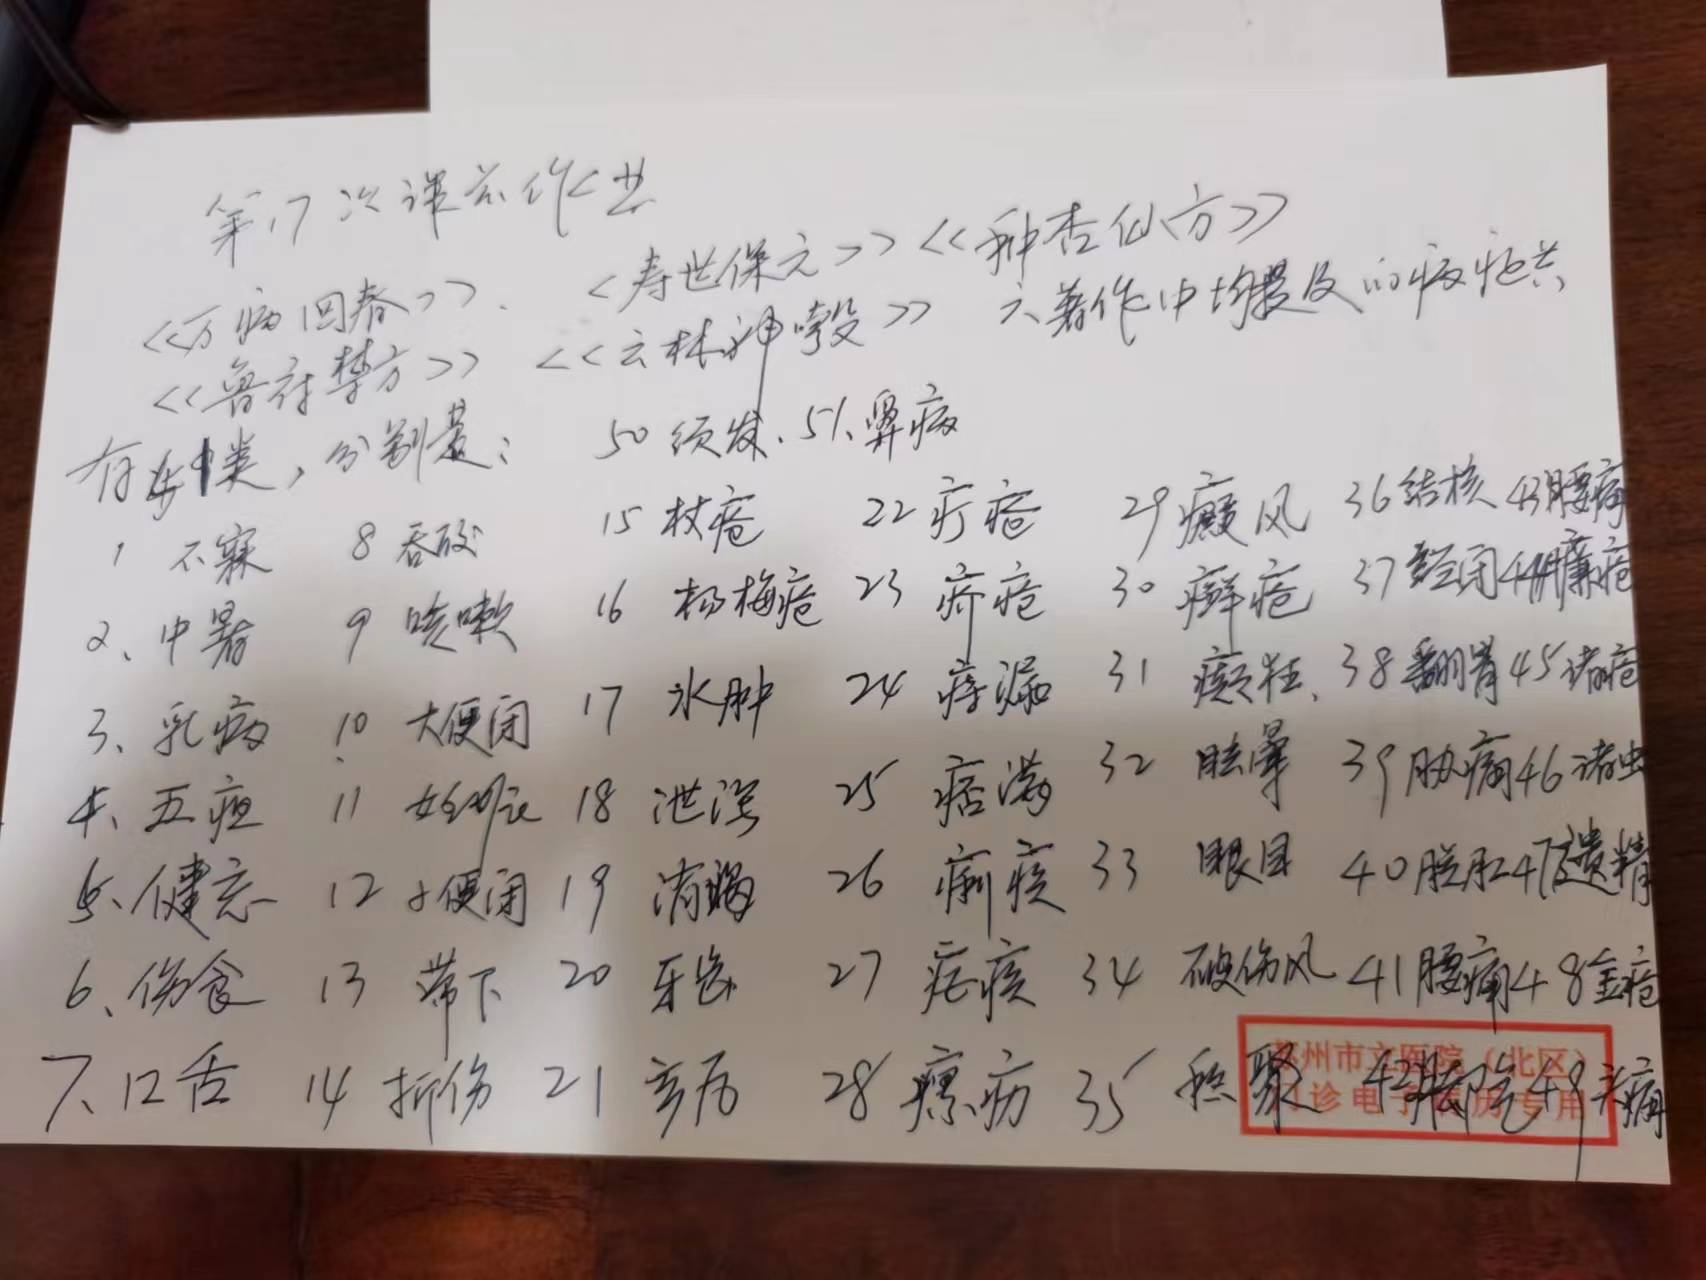 第17次课前作业
<<万病回春>>、 <寿世保元>> <<种杏仙方>>
<<鲁府禁方>> <<云林神彀>> 六著作中均提及的病症共
有 种类，分别是： 50 须发、51、鼻病
1 不寐 8 吞酸 15 杖疮 22 疔疮 29 癜风 36 结核 43腰痛
2、中暑 9 咳嗽 16 杨梅疮 23 疥疮 30 癣疮 37 经闭 44臁疮
3、乳病 10、大便闭 17 水肿 24 痔漏 31 癫狂、 38 翻胃 45 诸疮
4、五疸 11 妇幼 18 泄泻 25 痞满 32 眩晕 39 胁痛 46 诸虫
5、健忘 12 小便闭 19 消渴 26 痢疾 33 眼目 40 脱肛 47遗精
6、伤食 13 带下 20 牙齿 27 疟疾 34 破伤风 41 腰痛 48金疮
7、口舌 14 折伤 21 28 瘰疬 35 积聚 42 49头痛
州市立医院（北区）
门诊电子 专用